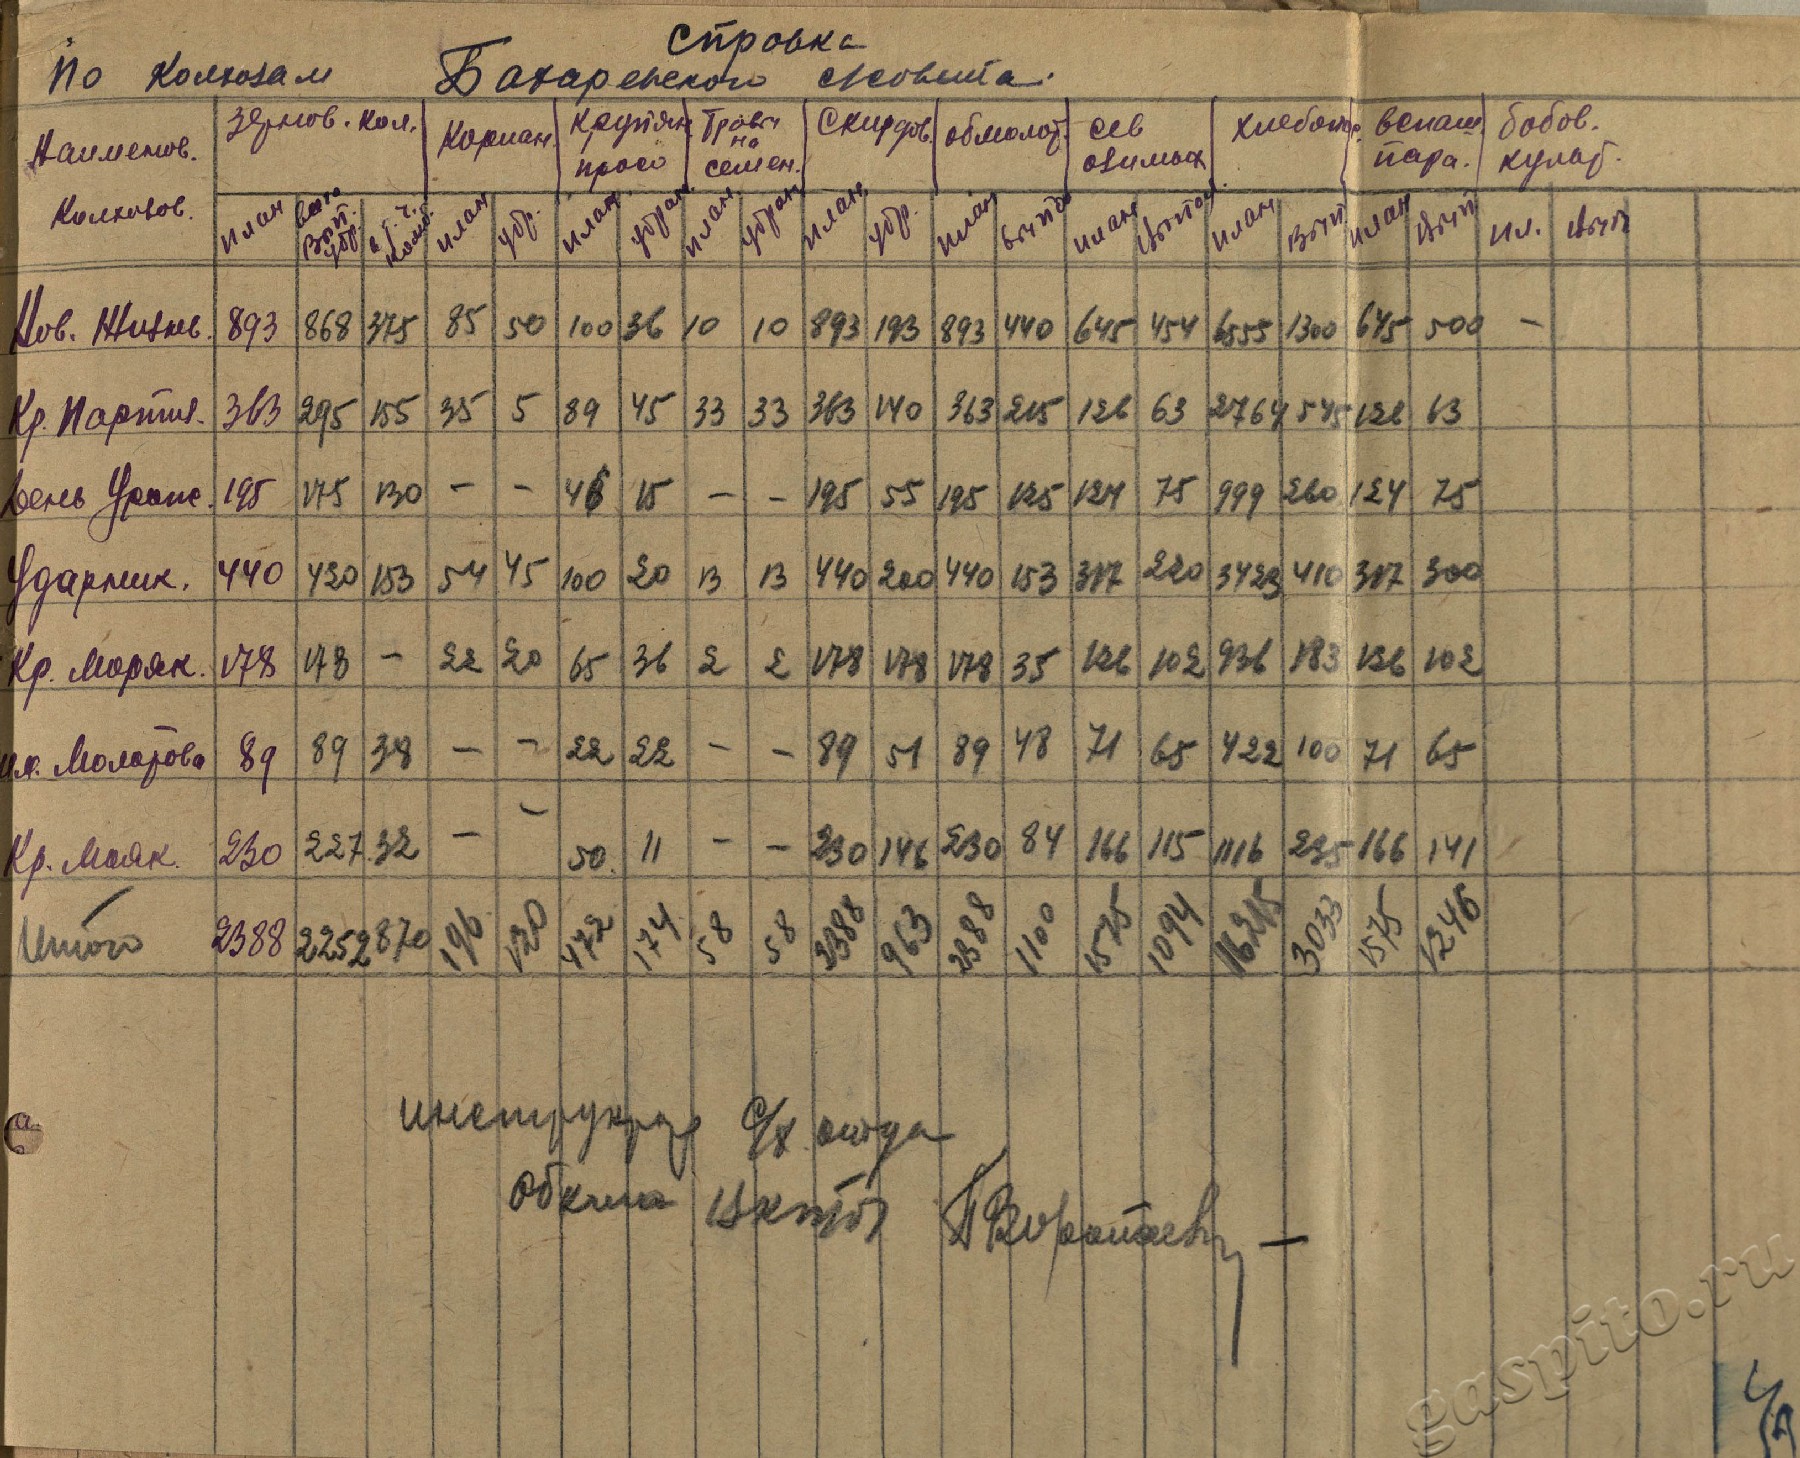 Справка
По колхозам Бахаревского с/совета.
Наименов. Колхозов. Зернов. кол. Кориан. Крупян просо Травы на семен. Скирдов. обмолот. сев озимых хлебопос. вспаш. пара. бобов. культ.
План убр. в т.ч. комб. план убр. план. убран. план убран план убр. план вып план вып план вып план вып пл. вып
Нов. Жизнь. 893 868 375 85 50 100 36 10 10 893 193 893 440 645 454 6555 1300 645 500 —
Кр. Партиз. 363 295 155 35 5 89 45 33 33 363 140 363 215 126 63 2764 545 126 63
День Урож. 195 175 130 — — 46 15 — — 195 55 195 125 124 75 999 260 124 75
Ударник. 440 420 153 54 45 100 20 13 13 440 200 440 153 317 220 3423 410 317 300
Кр. Моряк. 178 178 — 22 20 65 36 2 2 178 178 178 35 126 102 936 183 126 102
им. Молотова 89 89 38 — — 22 22 — — 89 51 89 48 71 65 422 100 71 65
Кр. Маяк. 230 227 32 — — 50. 11 — — 230 146 230 84 166 115 1116 235 166 141
Итого 2388 2252 870 196 120 472 174 58 58 2388 963 2388 1100 1575 1094 16215 3033 1575 1246
инструктор с/х отдела
Обкома
gaspito.ru